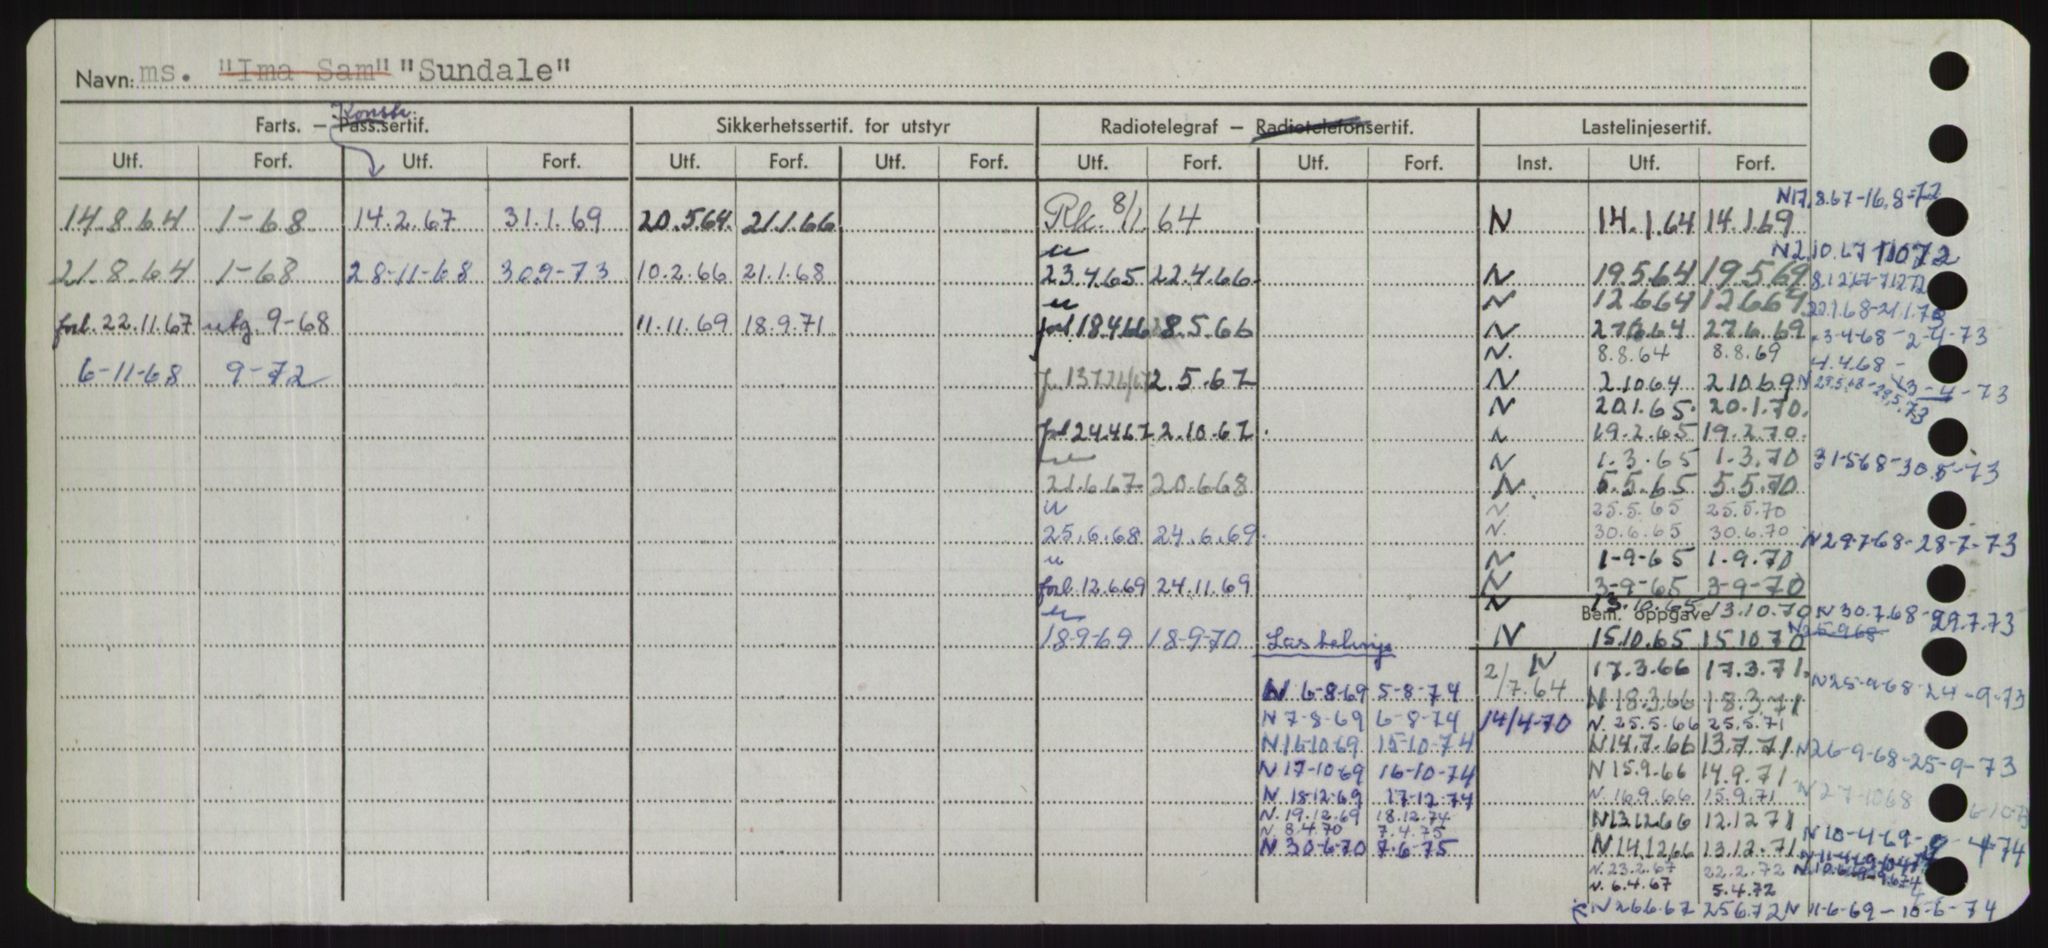 Navn: ms. "Ima Sam" "Sundale"
Farts. – Pass.sertif. Konstr. Sikkerhetssertif. for utstyr Radiotelegraf – Radiotelefonsertif. Lastelinjesertif.
Utf. Forf. Utf. Forf. Utf. Forf. Utf. Forf. Utf. Forf. Utf. Forf. Inst. Utf. Forf.
N17.8.67-16.8-72
14.8.64 1-68 14.2.67 31.1.69 20.5.64. 21.1.66 Rk. 8/1 64 N 14.1.64 14.1.69
N2.10.67 1.10.72
21.8.64 1-68 28-11-68 30.9-73 10.2.66 21.1.68 23.4.65 22.4.66 N 19.5.64 19.5.69 8.12.67-7.12.72
N 12.6.64 12.6.69 22.1.68-21.1.73
forl. 22.11.67 utg. 9-68 11.11.69 18.9.71 forl. 18.4.66 28.5.66 N 27.6.64 27.6.69 3-4-68-2-4-73
N. 8.8.64 8.8.69 4.4.68 -
6-11-68 9-72 2.5.67 N 2.10.64 2.10.69 N 29.5.68-28.5.73 3-4-73
N 20.1.65. 20.1.70.
forl 24.4.67 2.10.67. N 19.2.65 19.2.70.
N 1.3.65 1.3.70 31-5-68-30.5-73
21.6.67 20.6.68 N. 5.5.65 5.5.70
N. 25.5.65 25.5.70
25.6.68 24.6.69. N. 30.6.65 30.6.70 N29-7-68-28-7-73
N 1-9-65 1.9.70
forl. 12.6.69 24.11.69 N 3-9-65 3-9-70
N Bem. oppgave 13.10.65 13.10.70 N 30.7.68-29.7.73
18-9-69 18-9-70 Lastelinje N 15.10.65 15.10.70 N25-9-68
N 17.3.66 17.3.71.
N 6-8-69 5-8-74 2/7.64 N 18.3.66 18.3.71 N25-9-68-24-9-73
N 7-8-69 6-8-74 14/4-70 N. 25.5.66 25.5.71
N16-10-69 15-10-74 N14.7.66 13.7.71. N26-9-68-25-9-73
N 17-10-69 16-10-74 N 15.9.66 14.9.71
N 18-12-69 17-12-74 N. 16.9.66 15.9.71 N 27-10-68
N. 19.12.69 18.12.74 N13.12.66 12.12.71
N. 8.4.70 7.4.75 N 10-4-69-9-4-74
N 30-6-70 7-6-75 N14.12.66 13.12.71
N. 23.2.67 22.2.72
N. 6.4.67 5.4.72
N 26.6.67 25.6.72 N 11-6-69-10-6-74